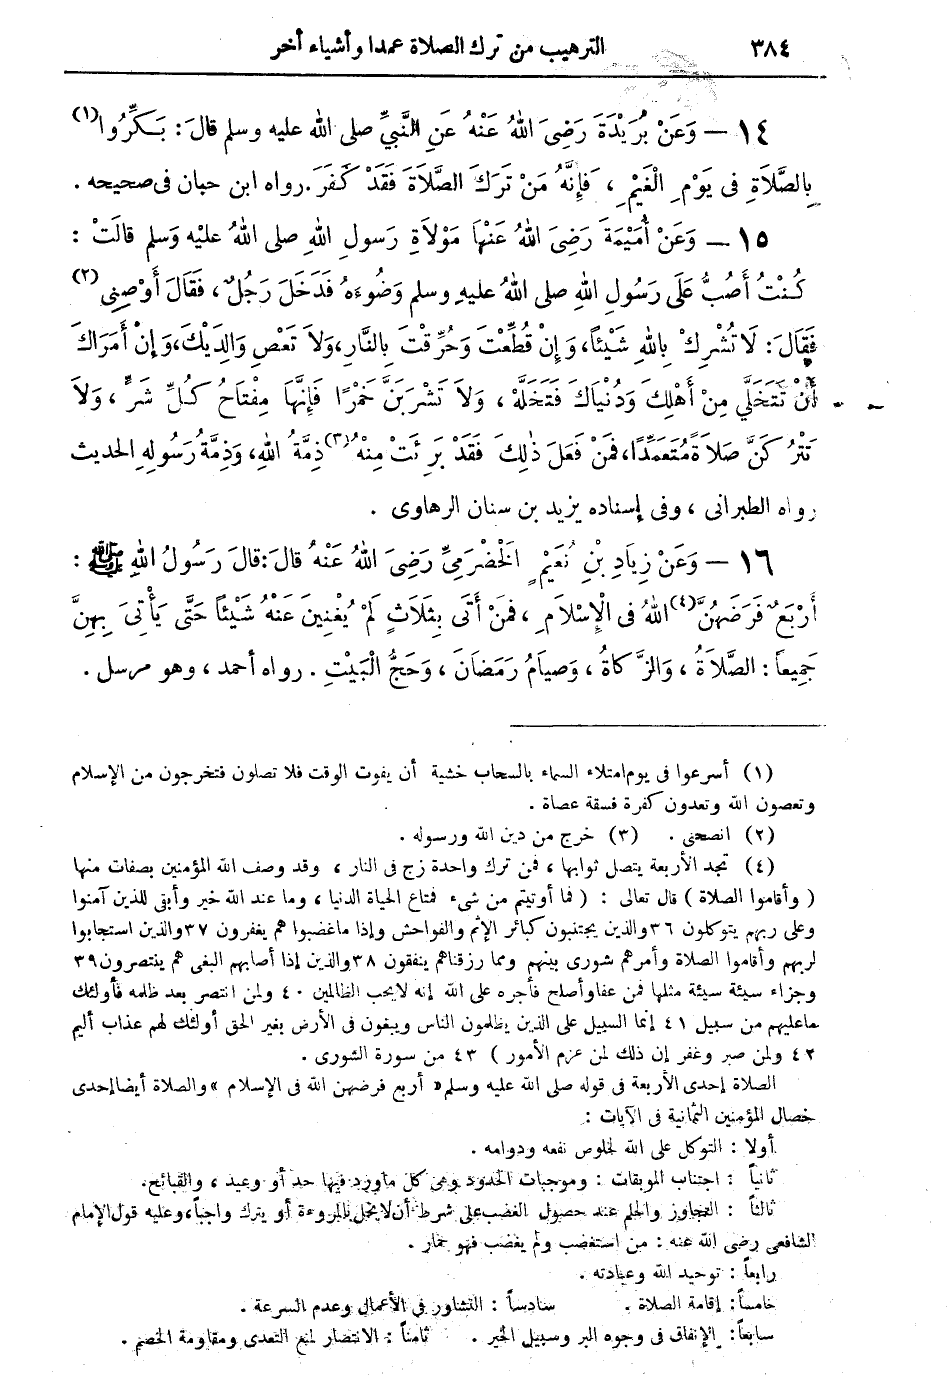 ٣٨٤ الترهيب من ترك الصلاة عمدا وأشياء أخر
١٤ — وَعَنْ بُرَيْدَةَ رَضِىَ اللهُ عَنْهُ عَنِ النَّبِيِّ صلى اللهُ عليه وسلم قالَ: بَكِّرُوا(١)
بِالصَّلاَةِ فِى يَوْمِ الْغَيْمِ، فَإِنَّهُ مَنْ تَرَكَ الصَّلاَةَ فَقَدْ كَفَرَ. رواه ابن حبان فى صحيحه.
١٥ — وَعَنْ أُمَيْمَةَ رَضِىَ اللهُ عَنْهَا مَوْلاَةِ رَسُولِ اللهِ صلى اللهُ عليْه وَسلم قالَتْ:
كُنْتُ أَصُبُّ عَلَى رَسُولِ اللهِ صلى اللهُ عليهِ وسلم وَضُوءَهُ فَدَخَلَ رَجُلٌ، فَقَالَ أَوْصِنِى(٢)
فَقَالَ: لاَ تُشْرِكْ بِاللهِ شَيْئاً، وَإِنْ قُطِّعْتَ وَحُرِّقْتَ بِالنَّارِ، وَلاَ تَعْصِ وَالِدَيْكَ، وَإِنْ أَمَرَاكَ
أَنْ تَتَخَلَّي مِنْ أَهْلِكَ وَدُنْيَاكَ فَتَخَلَّهْ، وَلاَ تَشْرَبَنَّ خَمْرًا فَإِنَّهَا مِفْتَاحُ كُلِّ شَرٍّ، وَلاَ
تَتْرُكَنَّ صَلاَةً مُتَعَمِّدًا، فَمَنْ فَعَلَ ذٰلِكَ فَقَدْ بَرِئَتْ مِنْهُ(٣) ذِمَّةُ اللهِ، وَذِمَّةُ رَسُولِهِ الحديث
رواه الطبرانى، وفى إسناده يزيد بن سنان الرهاوى.
١٦ — وَعَنْ زِيَادِ بْنِ نُعَيْمٍ الْحَضْرَمِيِّ رَضِىَ اللهُ عَنْهُ قالَ: قالَ رَسُولُ اللهِ ﷺ:
أَرْبَعٌ فَرَضَهُنَّ(٤) اللهُ فى الْإِسْلاَمِ، فَمَنْ أَتَى بِثَلاَثٍ لَمْ يُغْنِينَ عَنْهُ شَيْئاً حَتَّى يَأْتِىَ بِهِنَّ
جَمِيعاً: الصَّلاَةُ، وَالزَّكاةُ، وَصِيامُ رَمَضَانَ، وَحَجُّ الْبَيْتِ. رواه أحمد، وهو مرسل.
(١) أسرعوا فى يوم امتلاء السماء بالسحاب خشية أن يفوت الوقت فلا تصلون فتخرجون من الإسلام
وتعصون الله وتعدون كفرة فسقة عصاة.
(٢) انصحنى. (٣) خرج من دين الله ورسوله.
(٤) تجد الأربعة يتصل ثوابها، فمن ترك واحدة زج فى النار، وقد وصف الله المؤمنين بصفات منها
(وأقاموا الصلاة) قال تعالى: (فما أوتيتم من شىء فمتاع الحياة الدنيا، وما عند الله خير وأبقى للذين آمنوا
وعلى ربهم يتوكلون ٣٦ والذين يجتنبون كبائر الإثم والفواحش وإذا ماغضبوا هم يغفرون ٣٧ والذين استجابوا
لربهم وأقاموا الصلاة وأمرهم شورى بينهم ومما رزقناهم ينفقون ٣٨ والذين إذا أصابهم البغى هم ينتصرون ٣٩
وجزاء سيئة سيئة مثلها فمن عفا وأصلح فأجره على الله إنه لايحب الظالمين ٤٠ ولمن انتصر بعد ظلمه فأولئك
ماعليهم من سبيل ٤١ إنما السبيل على الذين يظلمون الناس ويبغون فى الأرض بغير الحق أولئك لهم عذاب أليم
٤٢ ولمن صبر وغفر إن ذلك لمن عزم الأمور) ٤٣ من سورة الشورى.
الصلاة إحدى الأربعة فى قوله صلى الله عليه وسلم «أربع فرضهن الله فى الإسلام» والصلاة أيضا إحدى
خصال المؤمنين الثمانية فى الآيات:
أولا: التوكل على الله لخلوص نفعه ودوامه.
ثانياً: اجتناب الموبقات: وموجبات الحدود وعن كل ماورد فيها حد أو وعيد، والقبائح.
ثالثاً: التجاوز والحلم عند حصول الغضب على شرط أن لا يخل بالمروءة أو يترك واجباً، وعليه قول الإمام
الشافعى رضى الله عنه: من استغضب ولم يغضب فهو حمار.
رابعاً: توحيد الله وعبادته.
خامساً: إقامة الصلاة. سادساً: التشاور فى الأعمال وعدم السرعة.
سابعاً: الإنفاق فى وجوه البر وسبيل الخير. ثامناً: الانتصار لمنع التعدى ومقاومة الخصم.